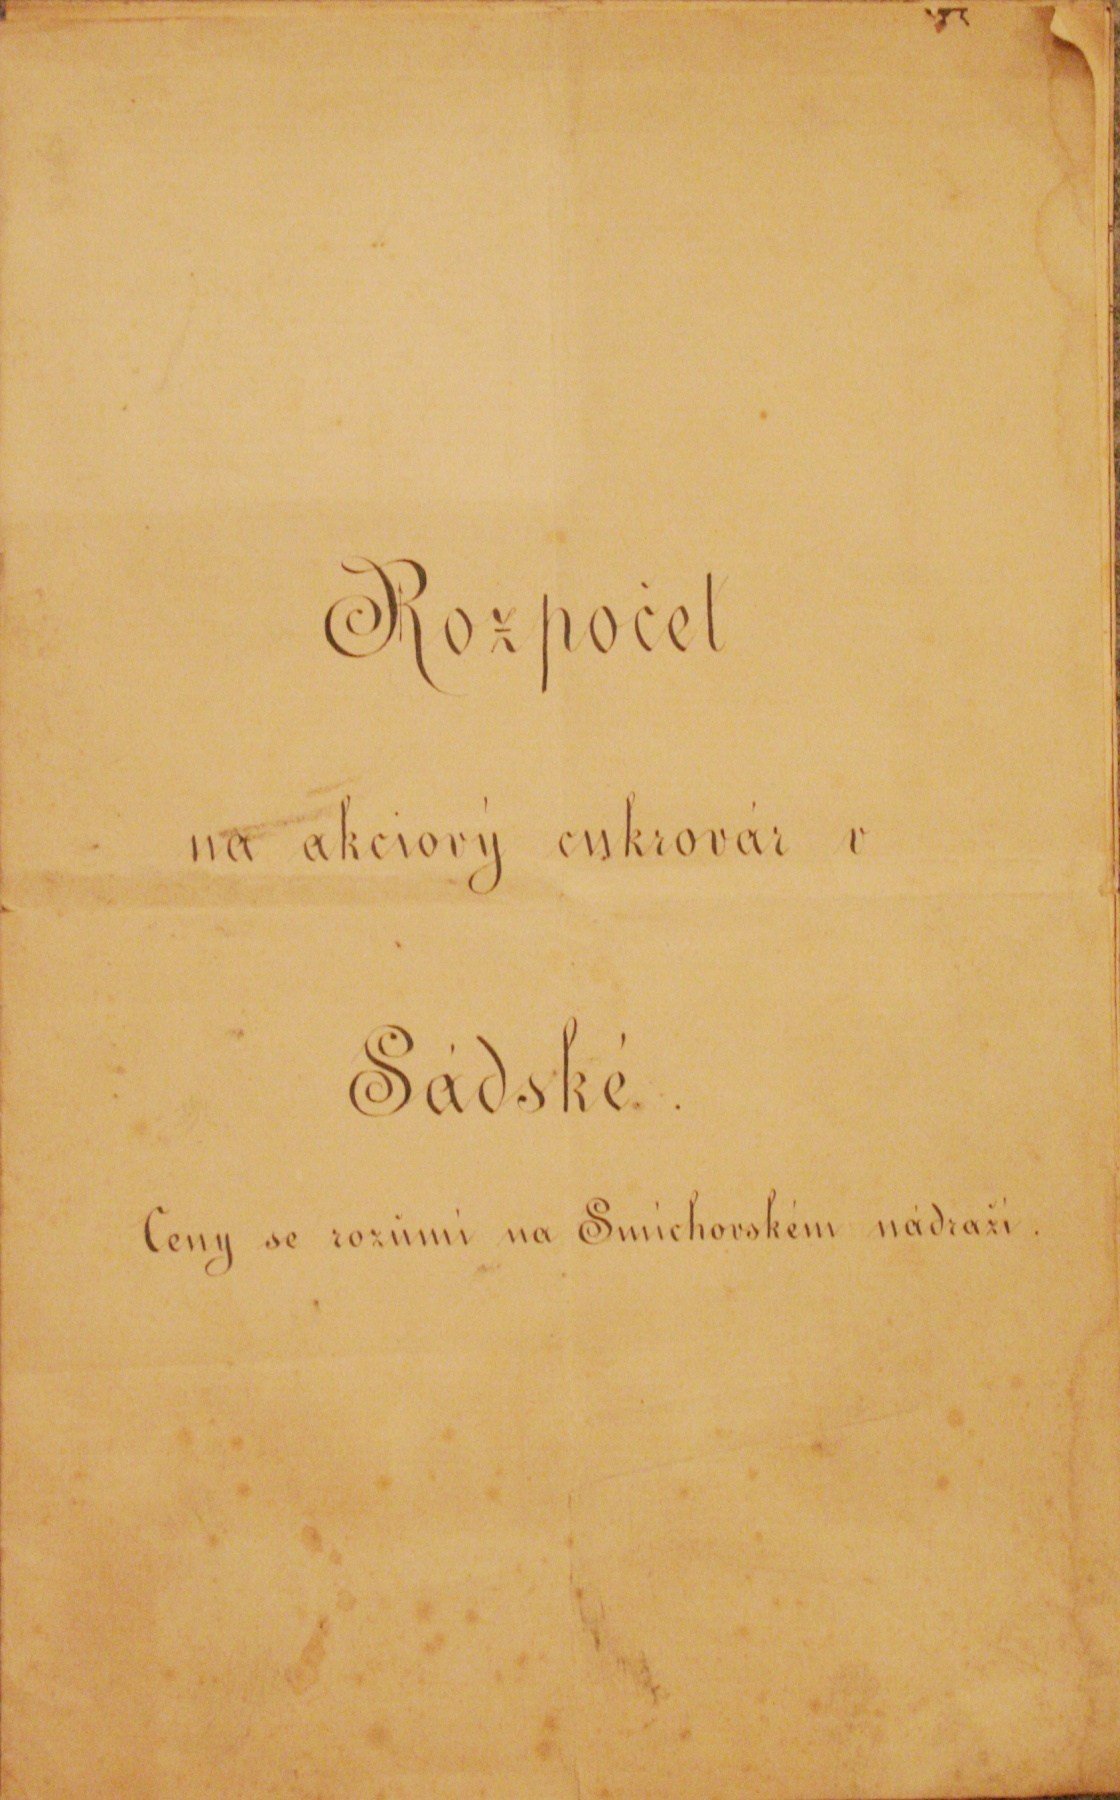 Rozpočet
na akciový cukrovár v
Sádské.
Ceny se rozumí na Smíchovském nádraží.